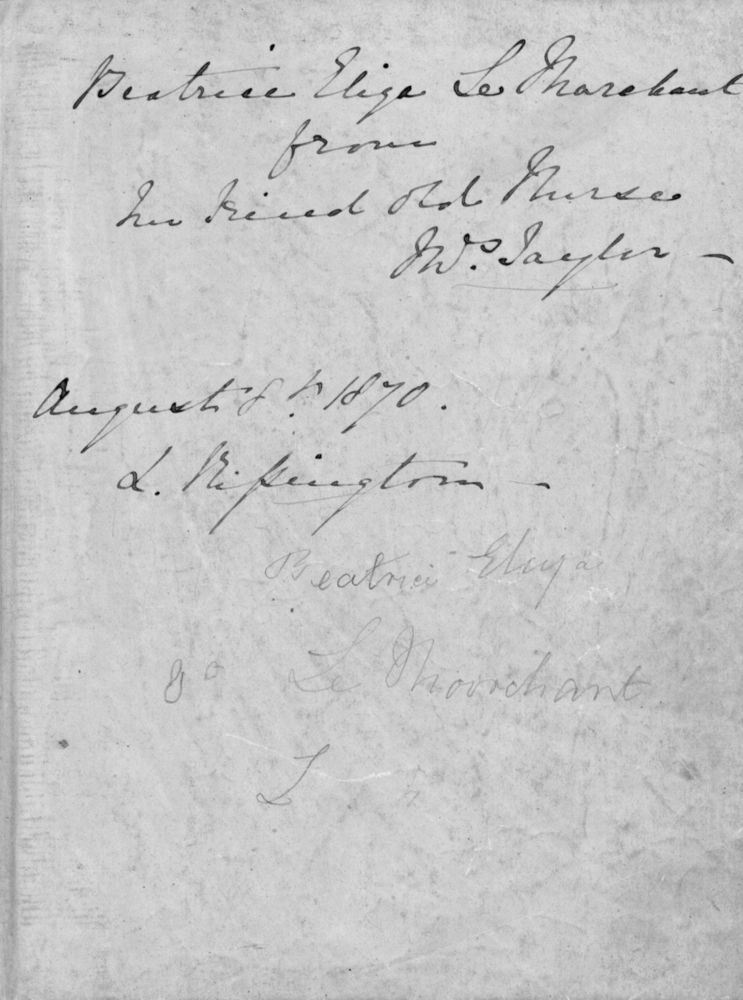 Beatrice Eliza Le Marchant
from
her friend old Nurse
Mrs. Taylor —
August 8th 1870.
L. Rissington —
Beatrice Eliza
Le Moorchant
L